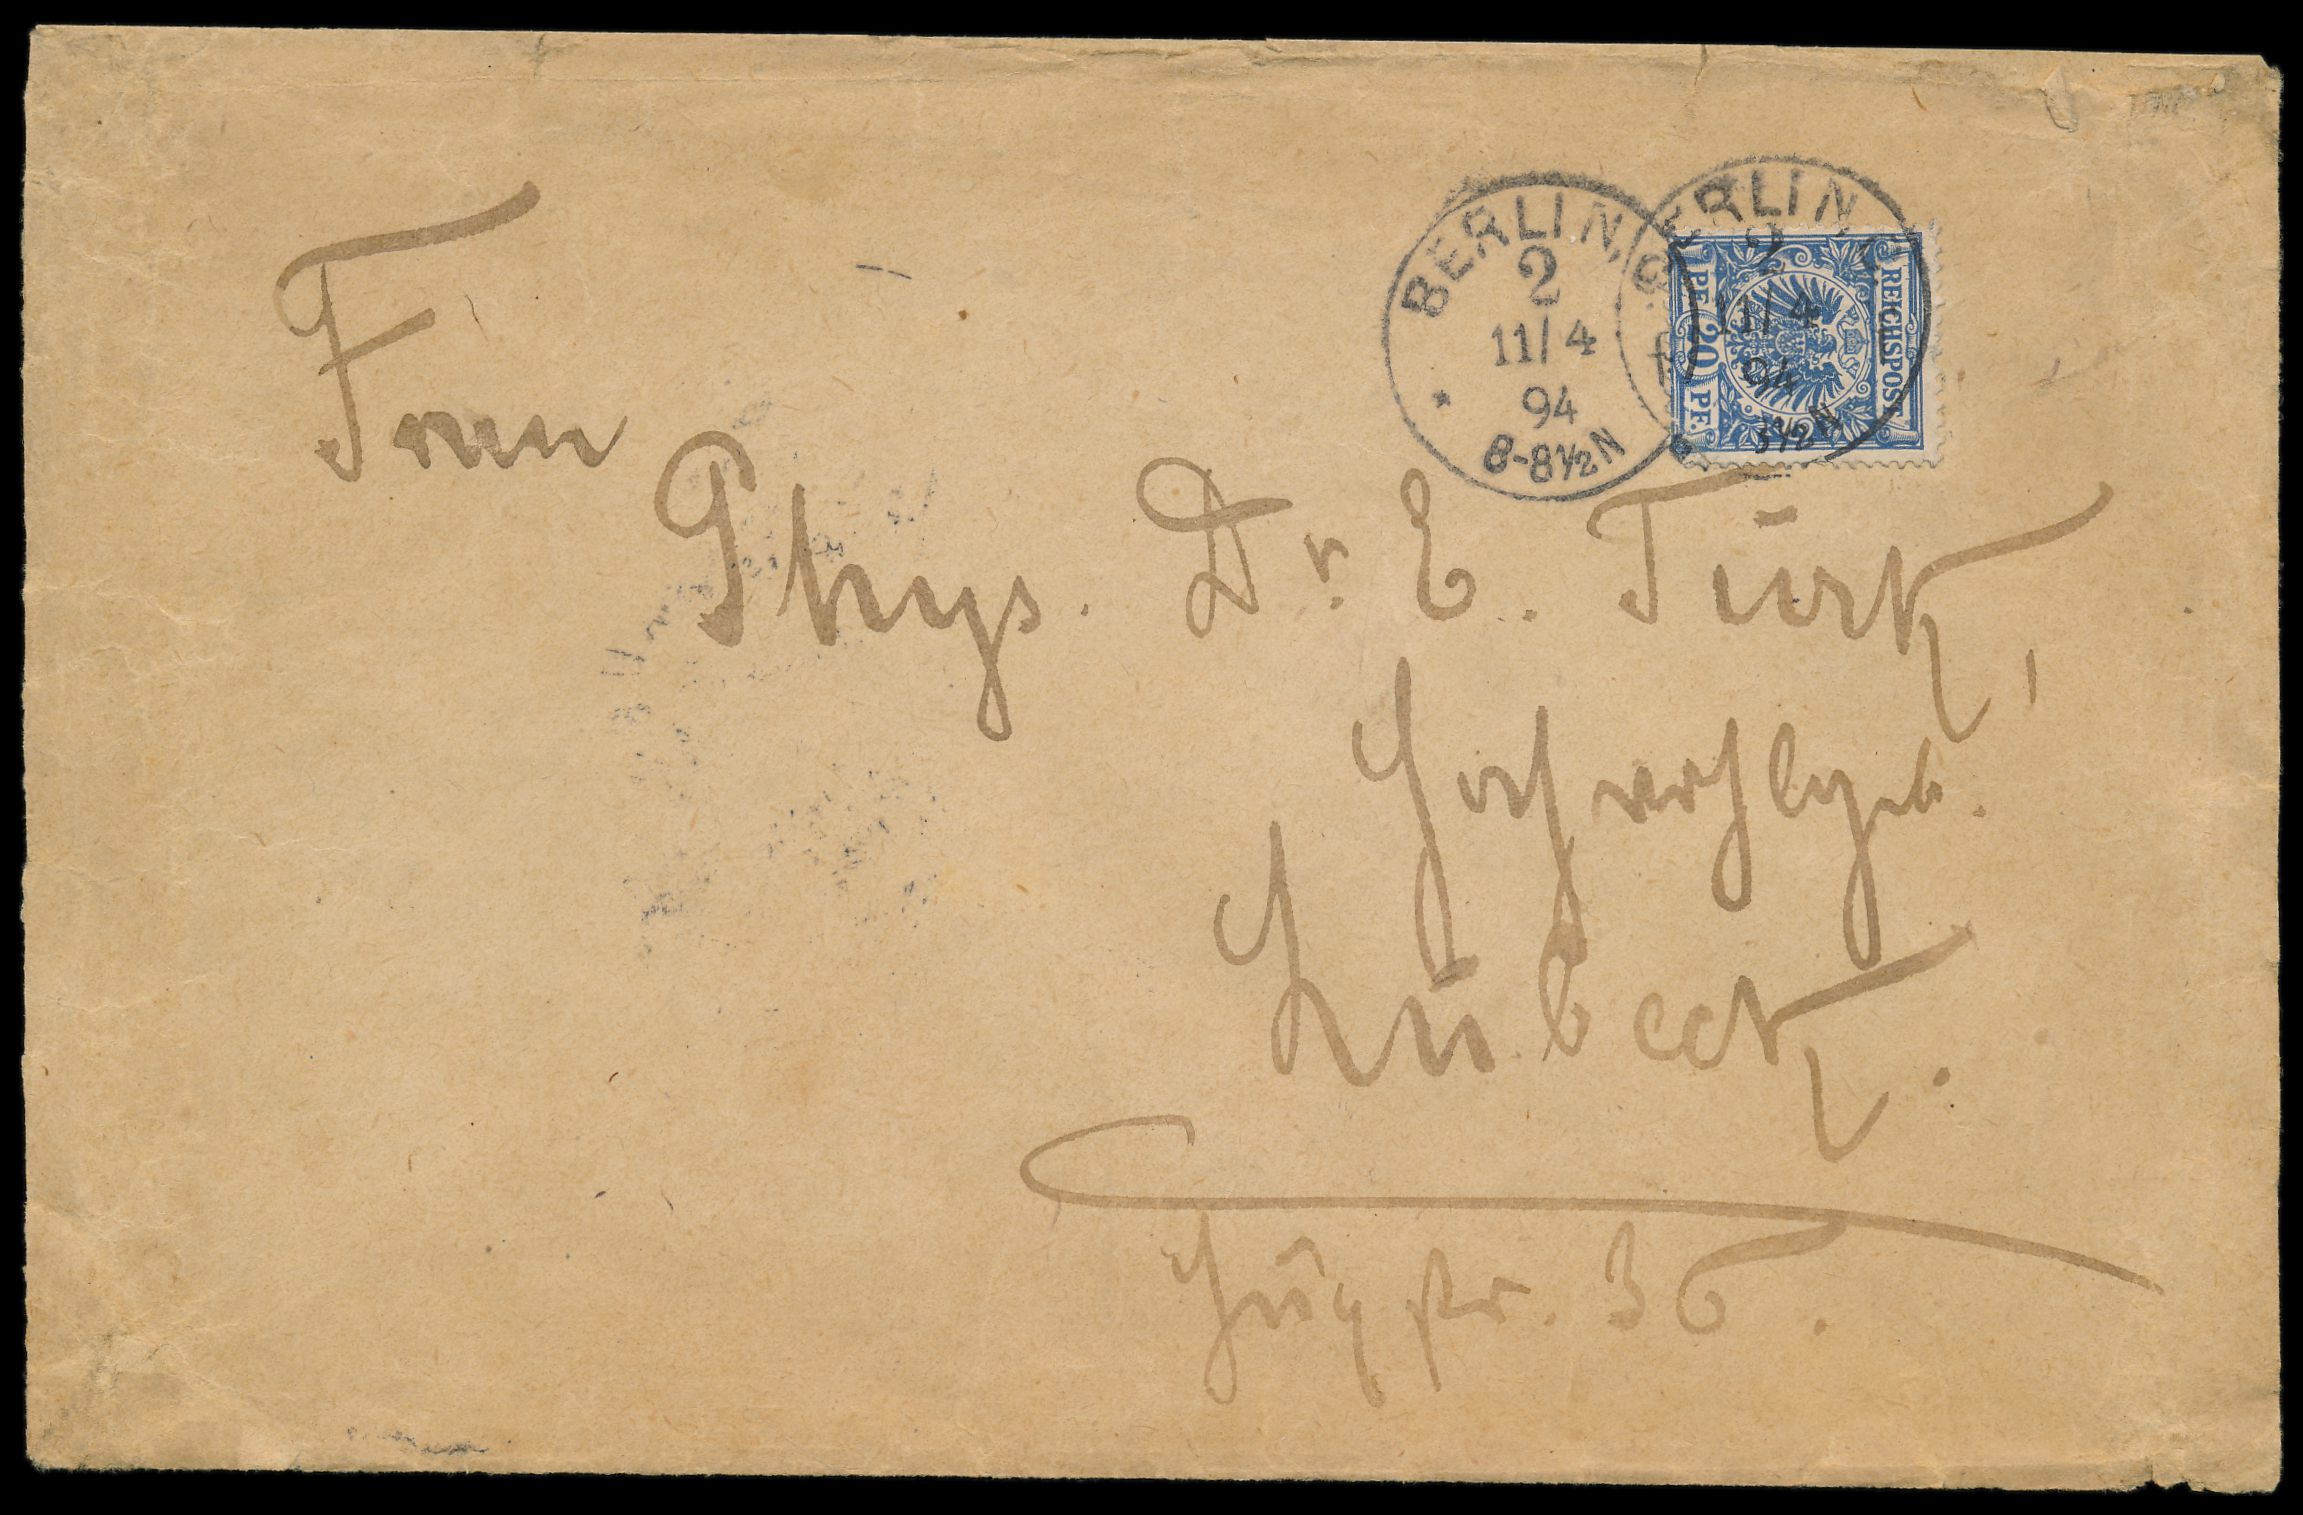 BERLIN, C.
2
11/4
94
8-8½N
BERLIN, C.
2
11/4
94
8-8½N
REICHSPOST
20
PF. PF.
Frau
Phys. Dr. E. Türk,
Hochwohlgeb.
Lübeck.
Hüxstr. 36.